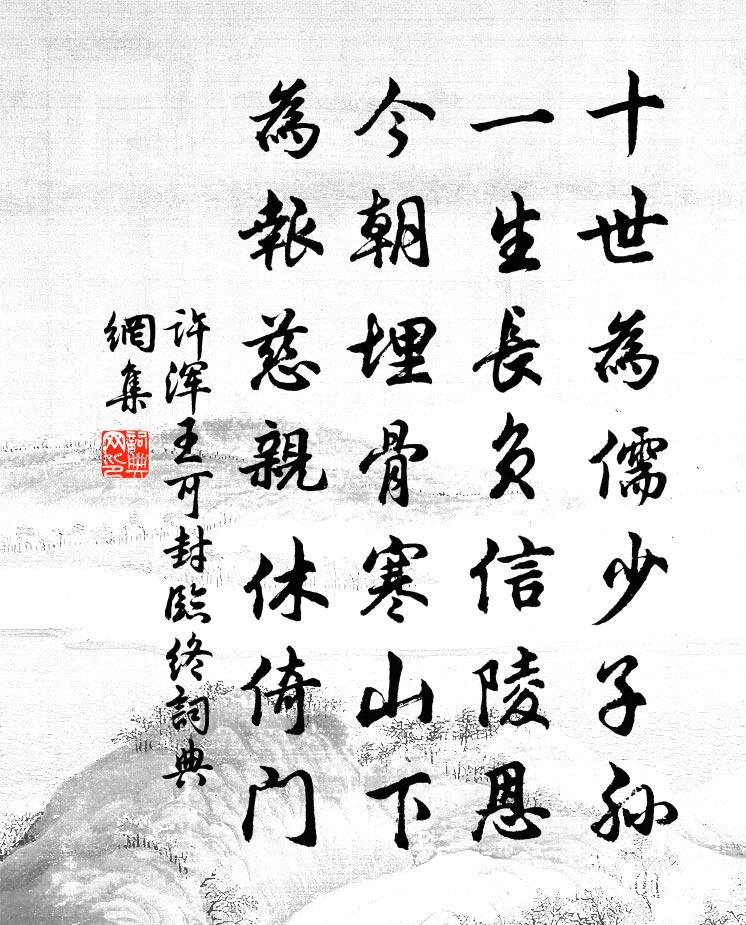 十世為儒少子孫
一生長負信陵恩
今朝埋骨寒山下
為報慈親休倚門
许渾王可封臨终詞典
網集
詞典
网印